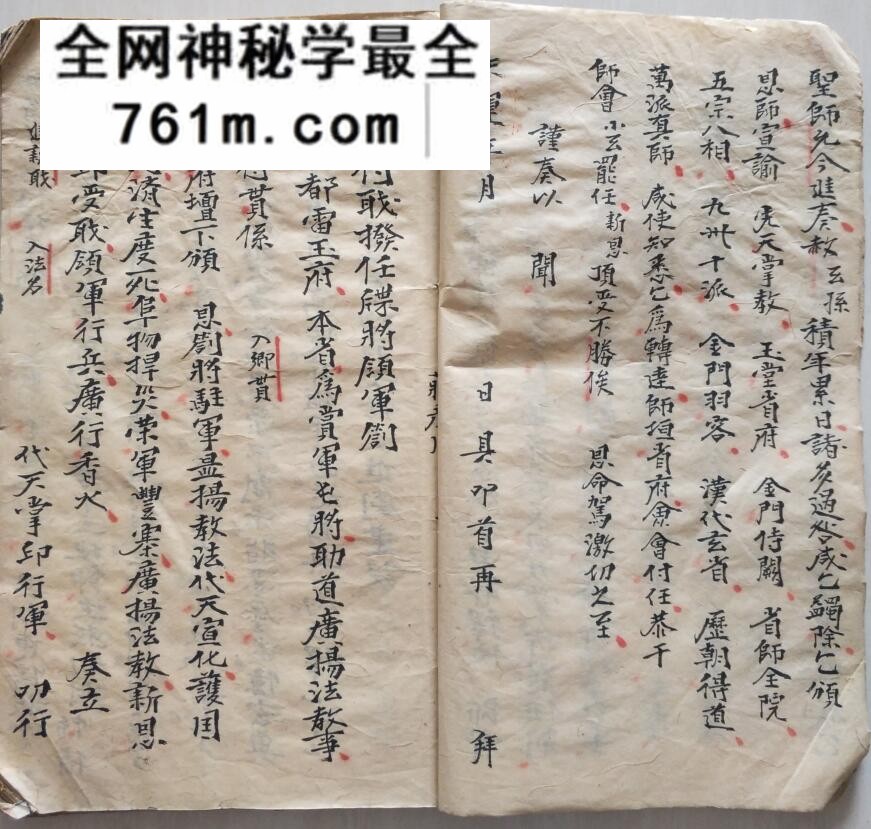 全网神秘学最全
761m.com
聖師允今進奏赦玄孫積年累日諸多過咎咸乞蠲除乞頒
恩師宣諭 先天掌教 玉堂省府 金門侍闕 省師全院
五宗八相 九州十派 金門羽客 漢代玄省 歷朝得道
萬派真師 咸使知悉乞為轉達師垣省府眾會付任恭干
師會 小玄罷任新恩頂受不勝俟 恩命駕激切之至
謹奏以 聞
天運 年 月 日具叩首再 拜
行職撥任牒將領軍劄
都雷玉府 本省為賞軍 將助道廣揚法教事
貫係 入鄉貫
府壇下頒 恩劄將駐軍 揚教法代天宣化護囯
濟生度死阜物捍災榮軍豐寨廣揚法教新恩
受職領軍行兵廣行香火 奏立
職 入法名 代天掌印行軍 叩行